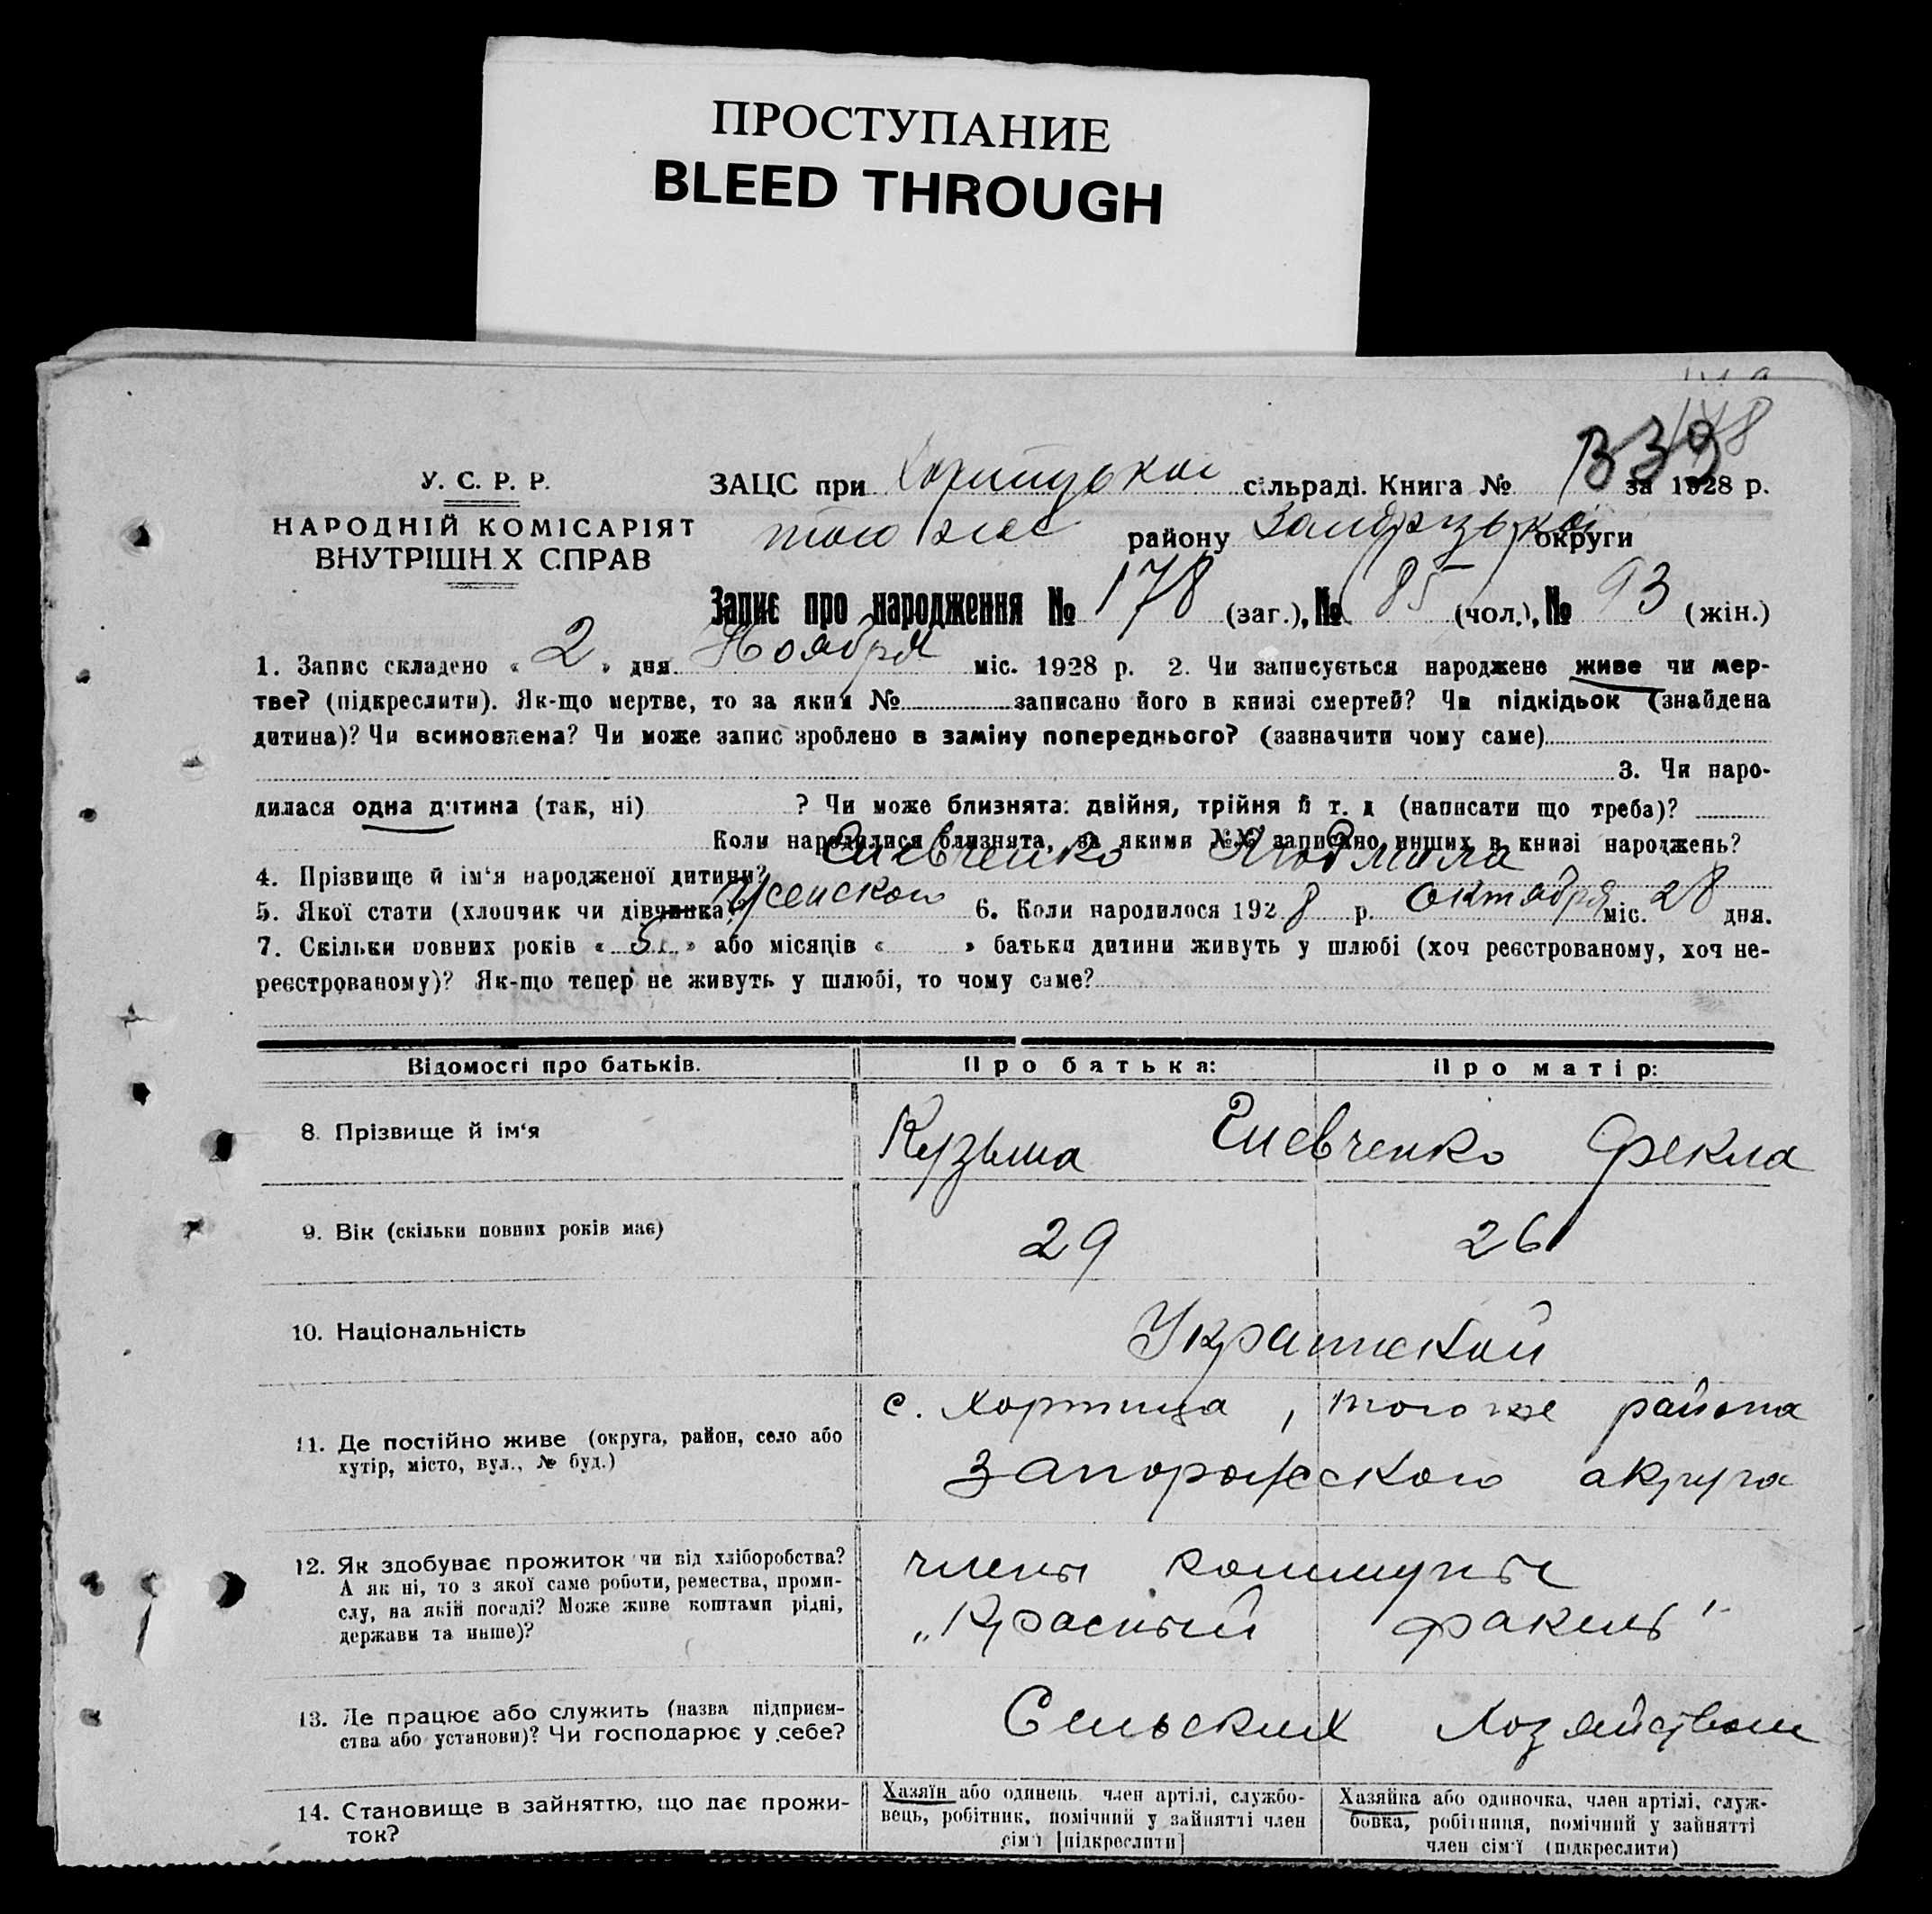 ПРОСТУПАНИЕ
BLEED THROUGH
В 39
У. С. Р. Р.
НАРОДНІЙ КОМІСАРІЯТ
ВНУТРІШН.Х СПРАВ
ЗАЦС при сільраді. Книга № за 1928 р.
того же району округи
Запис про народження № 178 (заг.), № 85 (чол.), № 93 (жін.)
1. Запис складено « 2 » дня Ноября міс. 1928 р. 2. Чи записується народжене живе чи мер-
тве? (підкреслити). Як-що мертве, то за яким № записано його в книзі смертей? Чи підкідьок (знайдена
дитина)? Чи всиновлена? Чи може запис зроблено в заміну попереднього? (зазначити чому саме)
3. Чи наро-
дилася одна дитина (так, ні) ? Чи може близнята: двійня, трійня й т. д (написати що треба)?
Коли народилися близнята, за якими №№ записано инших в книзі народжень?
4. Прізвище й ім'я народженої дитини? Людмила
5. Якої статі (хлопчик чи дівчинка)? Женского 6. Коли народилося 1928 р. октября міс. 28 дня.
7. Скільки повних років « 5 » або місяців « » батьки дитини живуть у шлюбі (хоч реєстрованому, хоч не-
реєстрованому)? Як-що тепер не живуть у шлюбі, то чому саме?
Відомості про батьків. Про батька: Про матір:
8. Прізвище й ім'я Кузьма Фекла
9. Вік (скільки повних років має) 29 26
10. Національність
11. Де постійно живе (округа, район, село або
хутір, місто, вул., № буд.)
с. Хортица, того же района
Запорожского округа
12. Як здобуває прожиток чи від хліборобства?
А як ні, то з якої саме роботи, ремества, проми-
слу, на якій посаді? Може живе коштами рідні,
держави та инше)?
члены коммуны
„Красный факел"
13. Де працює або служить (назва підприєм-
ства або установи)? Чи господарює у себе?
Сельских Хозяйством
14. Становище в зайняттю, що дає прожи-
ток?
Хазяїн або одинець, член артілі, службо-
вець, робітник, помічний у зайнятті член
сім'ї [підкреслити]
Хазяйка або одиночка, член артілі, служ-
бовка, робітниця, помічний у зайнятті
член сім'ї (підкреслити)